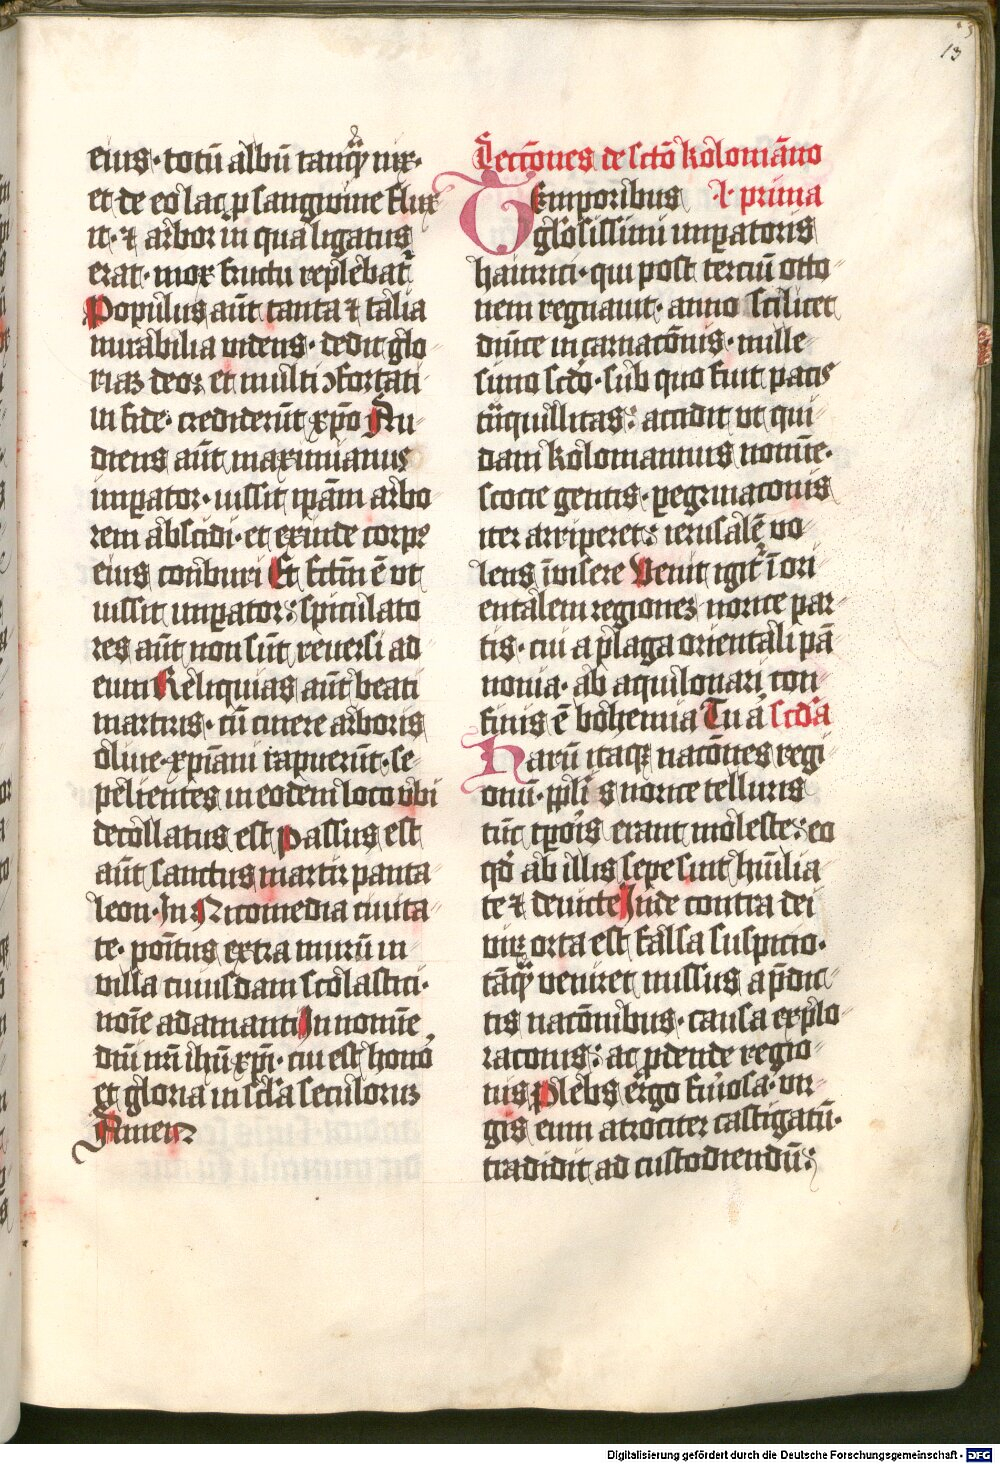 13
eius · totū albū tanqͣ nix ·
et de eo lac p̱ sangwine flux
it · ⁊ arbor in qua ligatus
erat · mox fructu replebatᷣ
Populus aūt tanta ⁊ talia
mirabilia videns · dedit glo
riaꝫ deo ꝛ et multi ꝯfortati
in fide · crediderūt xp̄o Au
diens aūt maximianus
imꝑator · iussit ip̄am arbo
rem abscidi · et exinde corpꝰ
eius conburi Et fctm̄ ē vt
iussit imꝑator : spiculato
res aūt non sūt reuersi ad
eum Reliquias aūt beati
martiris · cū cinere arboris
oliue · xp̄iani rapuerūt · se
pelientes in eodem loco vbi
decollatus est Passus est
aūt sanctus martir panta
leon · In Nicomedia ciuita
te · poītus extra murū in
villa cuiusdam scolastici ·
noīe adamanti In nomīe
dn̄i nr̄i ih̄u xp̄i · cui est honoꝛ
et gloria in scl̄a seculorum
Amen
Lectōnes de sctō kolomāno
Temporibus l· prima
gl̓osissimi imꝑatoris
hainrici · qui post terciū otto
nem regnauit · anno scilicet
diuīe incarnacōnis · mille
simo scdō · sub quo fuit pacis
tͣnquillitas : accidit vt qui
dam kolomannus nomīe ·
scocie gentis · ꝑegrinaconis
iter arriperet : ierusalē vo
lens īuisere Venit igitᷣ ī ori
entalem regioneꝫ norice par
tis · cui a plaga orientali pā
nonia · ab aquilonari con
finis ē bohemia Tu a᷑ scd̓a
Harū itaqꝫ nacōnes regi
onū · ppl̓i s norice telluris
tūc tꝑo̓is erant moleste : eo
qd̓ ab illis sepe sint hūilia
te ⁊ deuicte Inde contra dei
virꝫ orta est falsa suspicio ·
tāqͣ veniret missus a p̄dic
tis nacōnibus · causa explo
raconis : ac ꝑdende regio
nis Plebs ergo fur̓iosa · vir
gis eum atrociter castigatū ·
tradidit ad custodiendū :
Digitalisierung gefördert durch die Deutsche Forschungsgemeinschaft - DFG